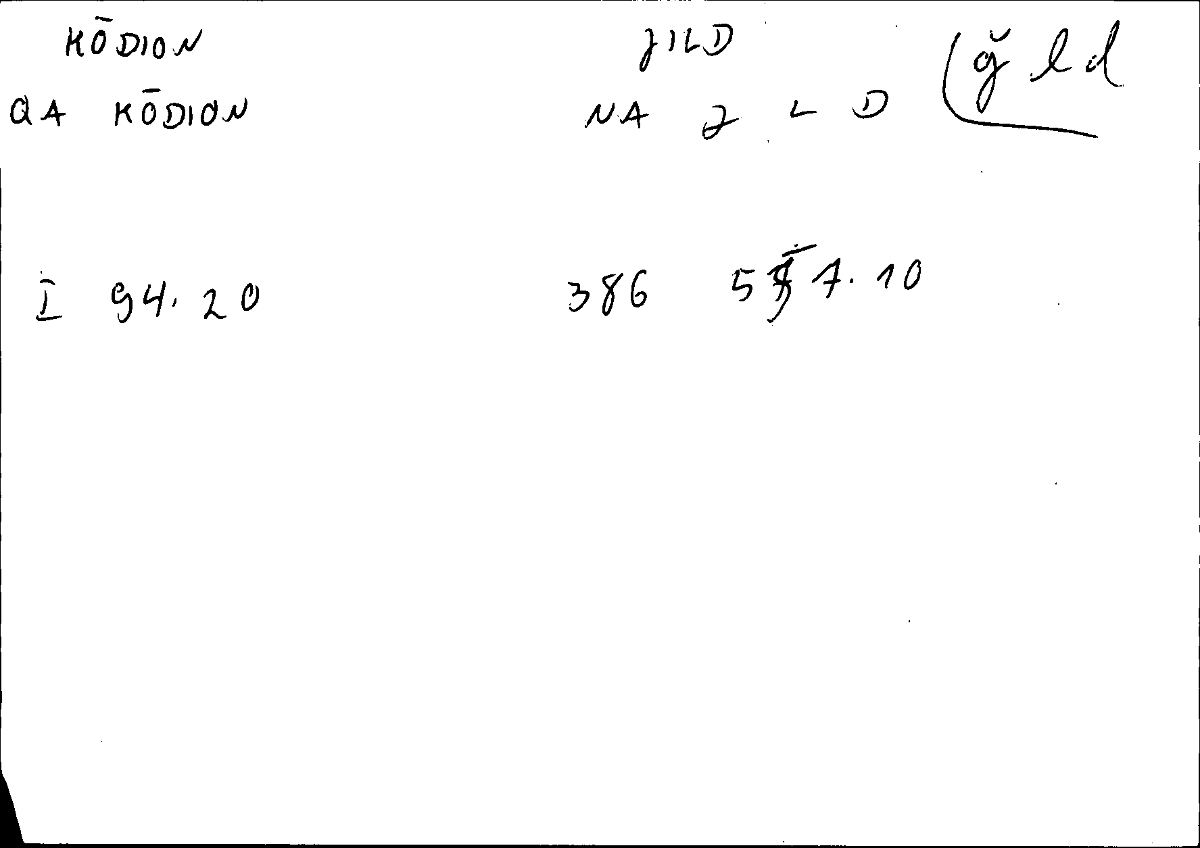 KŌDION JILD
QA KŌDION NA J L D (ǧ l d
I 94.20 386 5 7.10